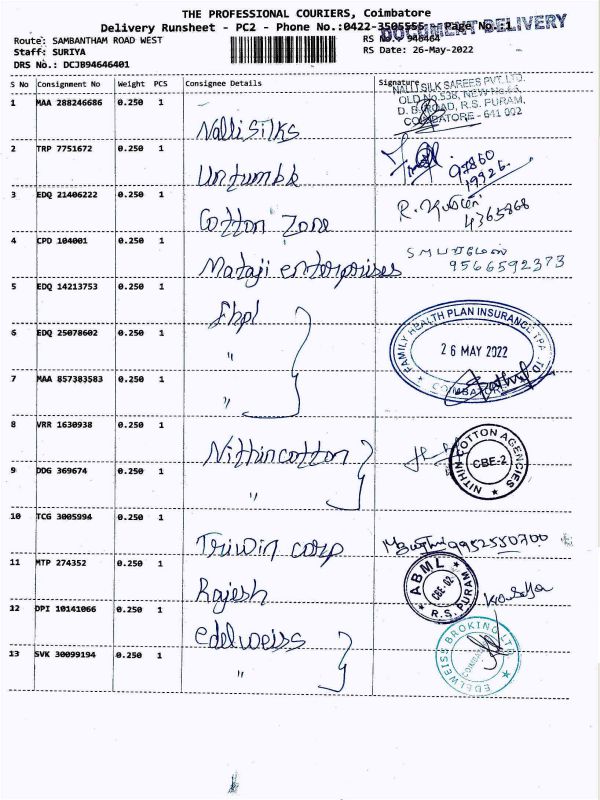 THE PROFESSIONAL COURIERS, Coimbatore
Delivery Runsheet - PC2 - Phone No.:0422-3505555 - Page No.:1
DOCUMENT DELIVERY
Route: SAMBANTHAM ROAD WEST
RS No.: 946464
Staff: SURIYA
RS Date: 26-May-2022
DRS No.: DCJB94646401
S No Consignment No Weight PCS Consignee Details Signature
1 MAA 288246686 0.250 1 Nalli Silks
NALLI SILK SAREES PVT. LTD.
OLD No.538, NEW No.
D. B. ROAD, R.S. PURAM,
COIMBATORE - 641 002
2 TRP 7751672 0.250 1
97860
19926
3 EDQ 21406222 0.250 1 Cotton Zone
4365868
4 CPD 104001 0.250 1 Mataji enterprises
9566592373
5 EDQ 14213753 0.250 1 Fhpl
6 EDQ 25078602 0.250 1 "
FAMILY HEALTH PLAN INSURANCE TPA LTD
26 MAY 2022
COIMBATORE
7 MAA 857383583 0.250 1 "
8 VRR 1630938 0.250 1 Nithin cotton
NITHIN COTTON AGENCIES
CBE-2
9 DDG 369674 0.250 1 "
10 TCG 3005994 0.250 1 Triwin corp
9952550700
11 MTP 274352 0.250 1 Rajesh
ABML
CBE-02
R.S. PURAM
12 DPI 10141066 0.250 1 edelweiss
EDELWEISS BROKING LTD
13 SVK 30099194 0.250 1 "